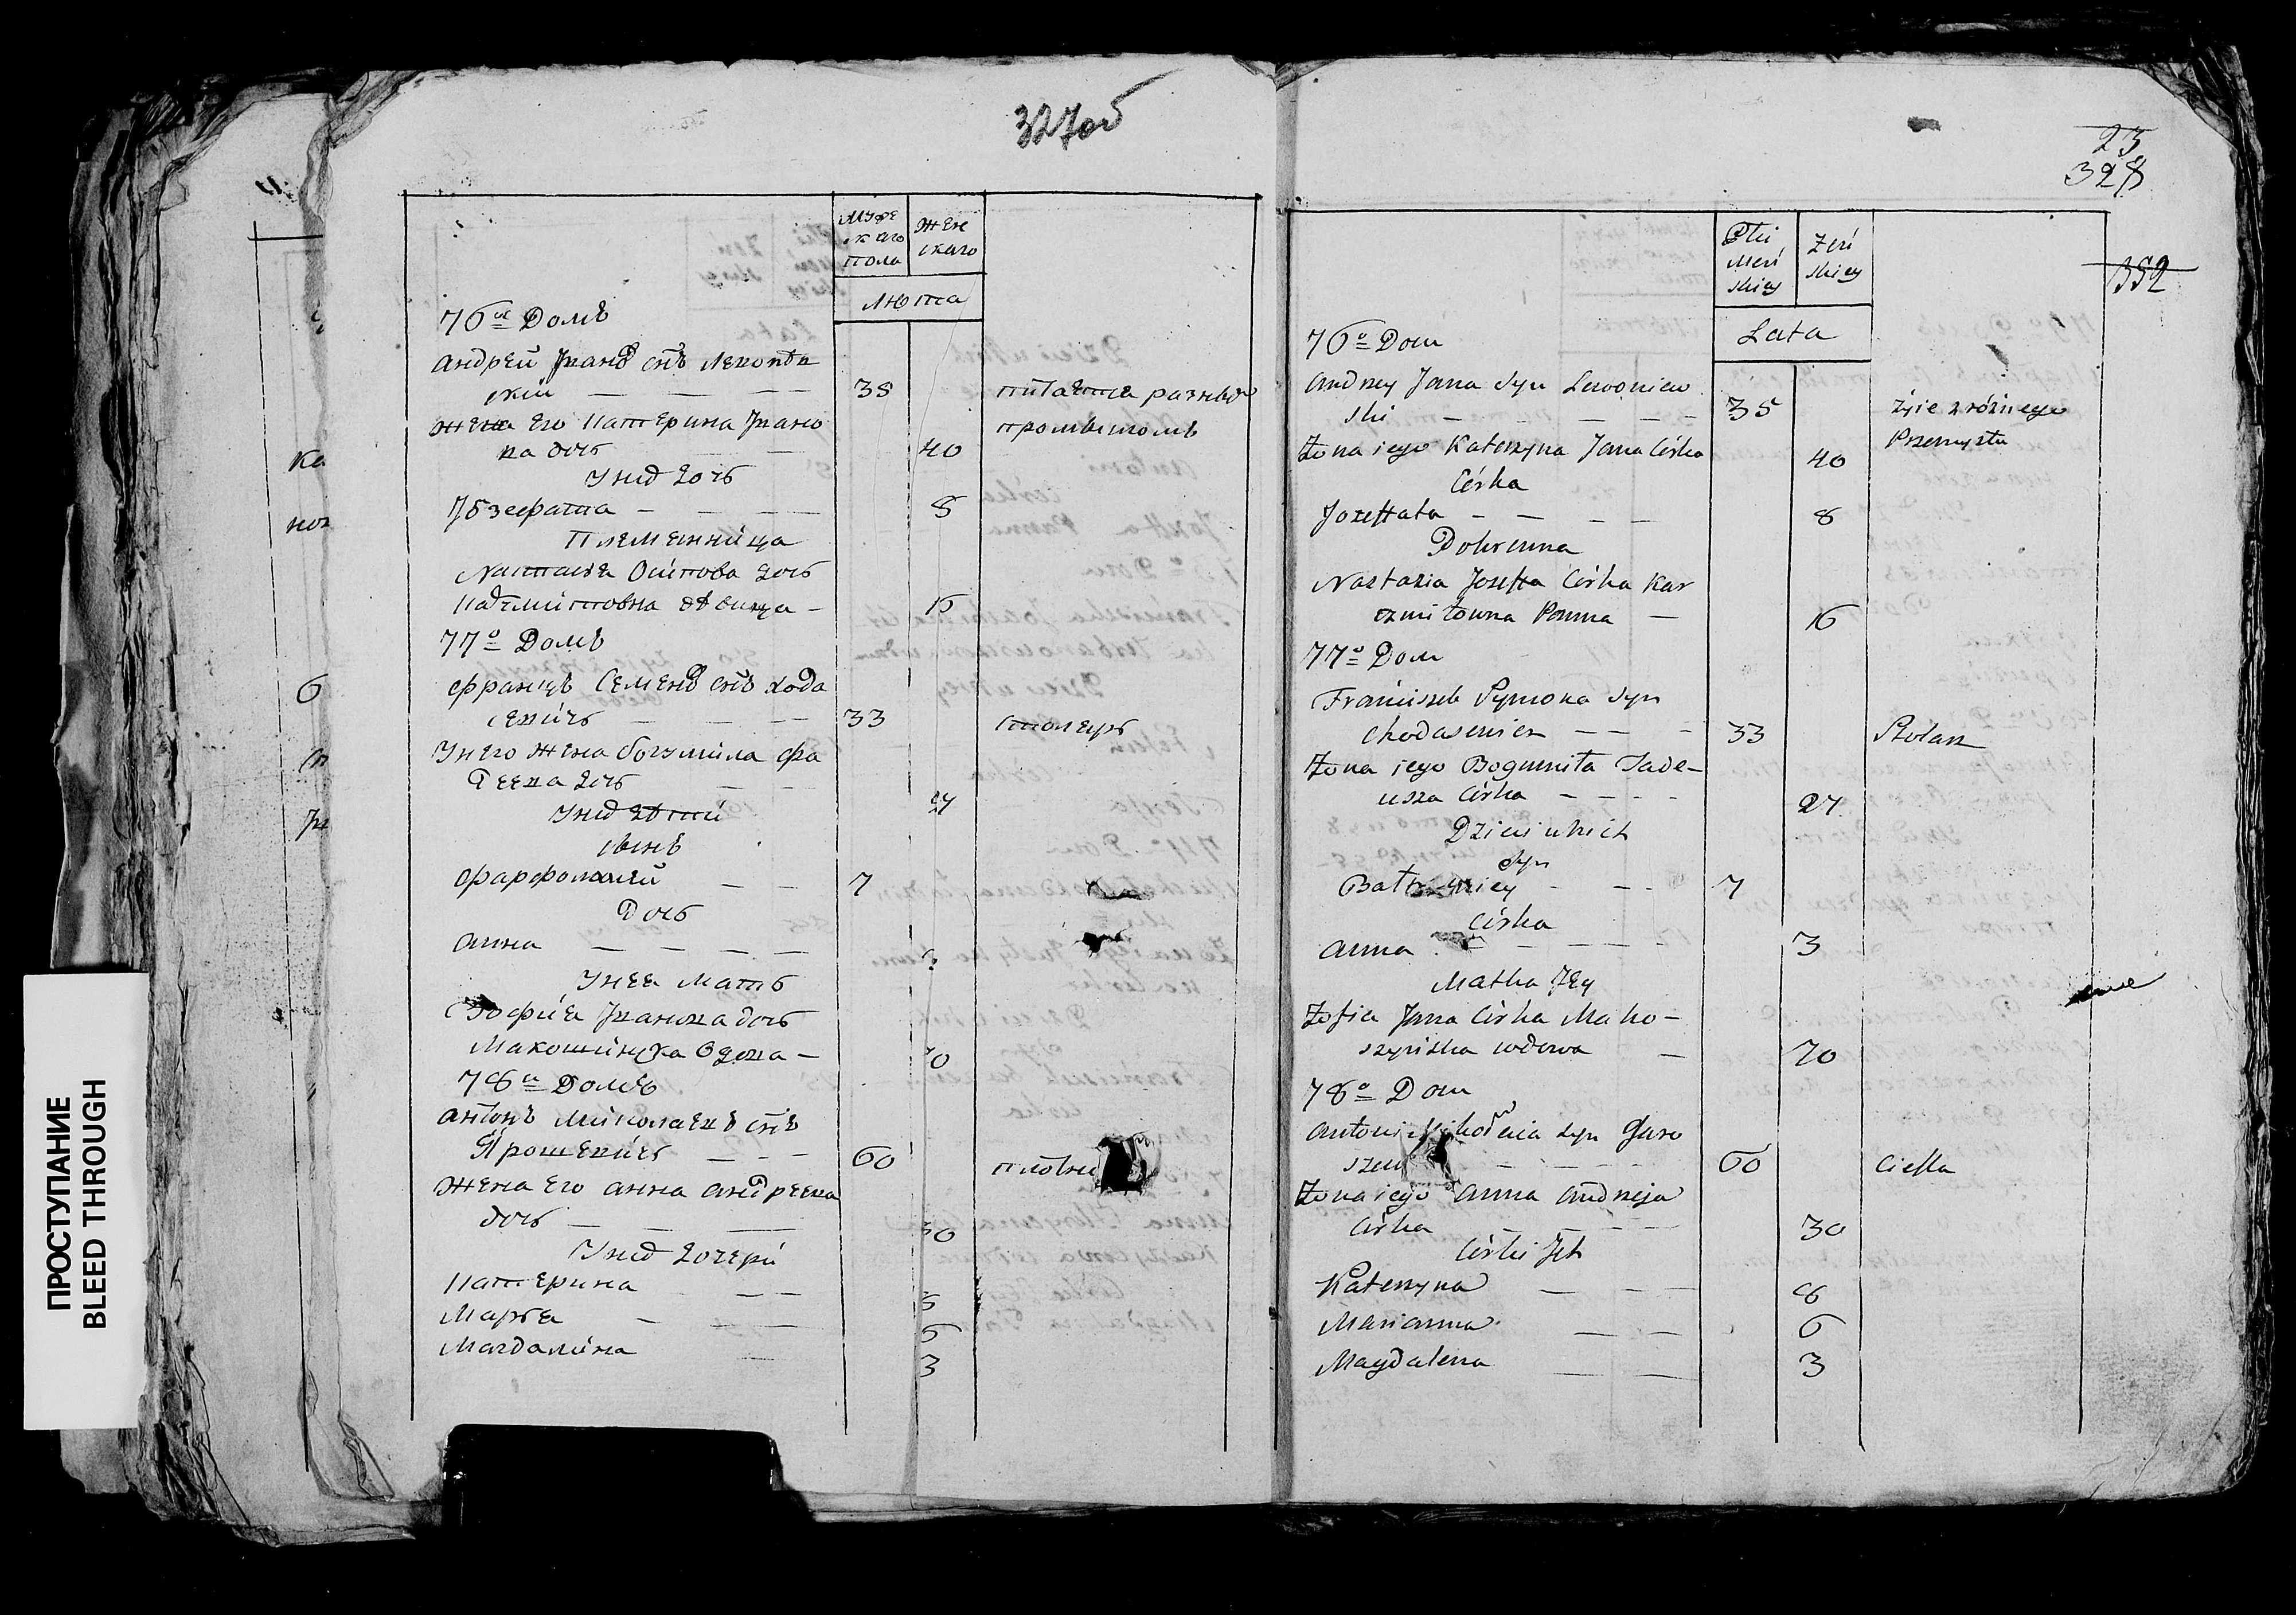 327об
Муже
скаго
пола
Жен
скаго
Лѣта
76ой Домъ
Андрей Иванъ снъ Левонтв
скій — — — 38 питается разнымъ
Жена Его Катерина Ивано
ва дочь — 40 промысломъ
Унид дочь
Юзефата — — — 8
Племянница
Настасья Осипова дочь
девица — 15
77о Домъ
Францъ Семенъ снъ Хода
севичъ — — — 33 столеръ
Унего Жена богумила Фа
деева дочь — —
27
Унид дети
сынъ
— — 7
Дочь
Анна — — — — 3
Унея Мать
Зофия Иванова дочь
Макошинска вдова — 70
78й Домъ
Антонъ Миколаевъ снъ
Ярошевичъ — — — 60 плотни
Жена Его Анна Андреева
дочь — — — 30
Унид дочери
Катерина — — 8
Марья — — 6
Магдалина — 3
23
328
352
Płci
Męs
skiey
Żeń
skiey
Lata
76o Dom
Andrzey Jana Syn Lewoniew
ski — — — — 35 żyie z różnego
Żona iego Katerzyna Jana Córka 40 Przemysłu
Córka
Jozeffata — — — — 8
Nastazia Jozeffa Córka Kar
czmitowna Panna — 16
77o Dom
Franciszek Symona Syn
Chodasewicz — — — 33 Stolarz
Żona iego Bogumiła Tade—
usza Córka — — — — 27
Dzieci u nich
Syn
— — — 7
Córka
Anna — — — — 3
Matka Jey
Zofia Jana Córka Mako—
szynska wdowa — 70
78o Dom
Antoni Syn Jaro
szew — — — — 60 Cieśla
Żona iego Anna Andrzeja
Córka — — — 30
Córki Ich
Katerzyna — — — 8
Marianna — — 6
Magdalena — — 3
ПРОСТУПАНИЕ
BLEED THROUGH